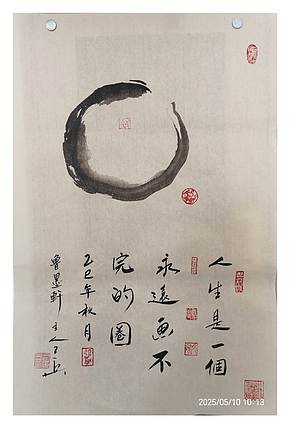 人生是一個
永遠画不
完的圈
乙巳年秋月
魯墨軒主人
2025/05/10 10:13